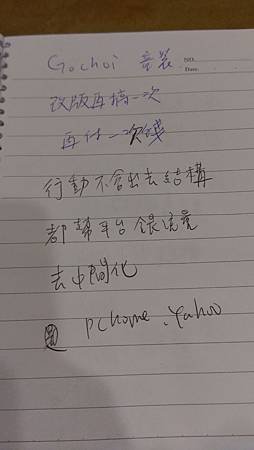 Gochoi 童裝
NO.
Date.
改版再搞一次
再付一次錢
行動不會出去結構
都幫平台 流量
去中間化
PChome、Yahoo